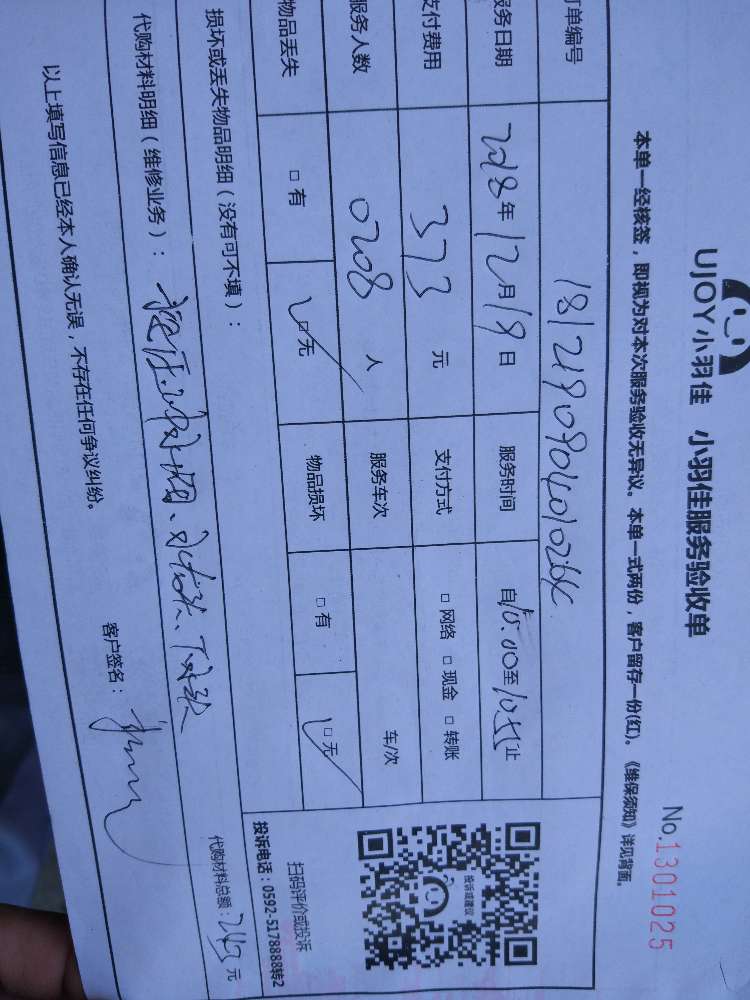 UJOY小羽佳 小羽佳服务验收单
No.1301025
本单一经核签，即视为对本次服务验收无异议。本单一式两份，客户留存一份(红)。《维保须知》详见背面。
订单编号
服务日期 2018年12月19日 服务时间 自10:00至10:55止
支付费用 373 元 支付方式 □网络 □现金 □转账
服务人数 0208 人 服务车次 车/次
物品丢失 □有 □无 物品损坏 □有 □无
损坏或丢失物品明细（没有可不填）：
代购材料明细（维修业务）：
代购材料总额：243元
以上填写信息已经本人确认无误，不存在任何争议纠纷。
客户签名：
投诉或建议
扫码评价或投诉
投诉电话：0592-5178888转2